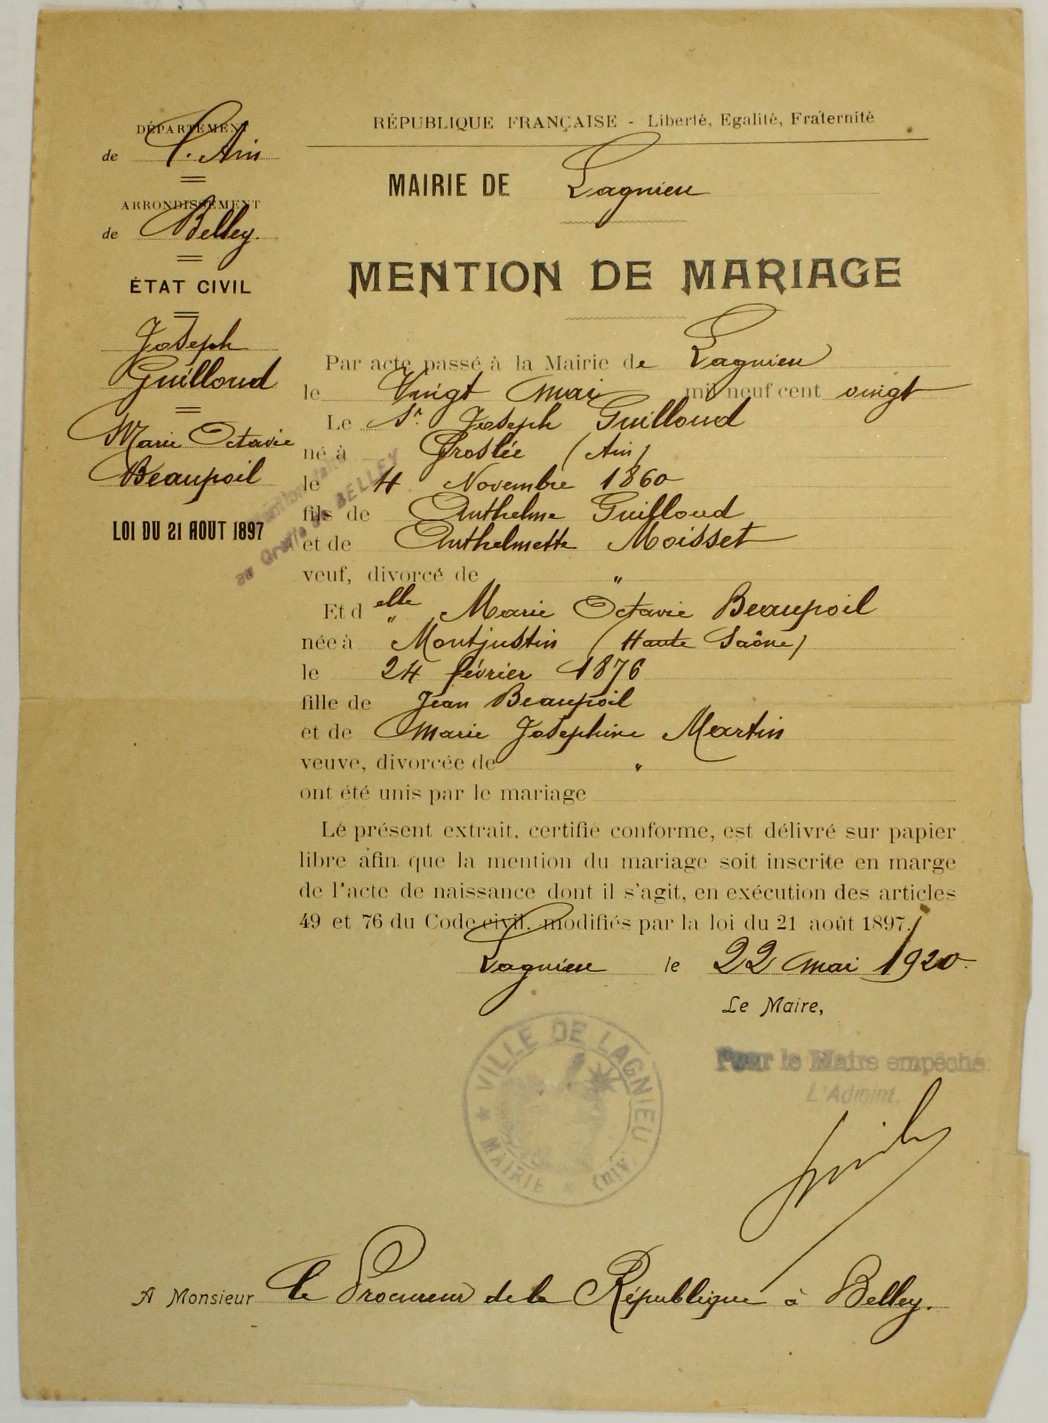 DÉPARTEMENT
de L'Ain
ARRONDISSEMENT
de Belley.
ÉTAT CIVIL
Joseph
Guilloud
Marie Octavie
Beaupoil
LOI DU 21 AOUT 1897
au Greffe de BELLEY
RÉPUBLIQUE FRANÇAISE - Liberté, Egalité, Fraternité
MAIRIE DE Lagnieu
MENTION DE MARIAGE
Par acte passé à la Mairie de Lagnieu
le Vingt mai mil neuf cent vingt
Le Sr Joseph Guilloud
né à Groslée (Ain)
le 4 Novembre 1860
fils de Anthelme Guilloud
et de Anthelmette Moisset
veuf, divorcé de "
Et d elle " Marie Octavie Beaupoil
née à Montjustin (Haute Saône)
le 24 février 1876
fille de Jean Beaupoil
et de Marie Joséphine Martin
veuve, divorcée de "
ont été unis par le mariage
Le présent extrait, certifié conforme, est délivré sur papier
libre afin que la mention du mariage soit inscrite en marge
de l'acte de naissance dont il s'agit, en exécution des articles
49 et 76 du Code civil, modifiés par la loi du 21 août 1897.
Lagnieu le 22 mai 1920.
Le Maire,
Pour le Maire empêché
L'Adjoint,
VILLE DE LAGNIEU
MAIRIE (Ain)
A Monsieur le Procureur de la République à Belley.